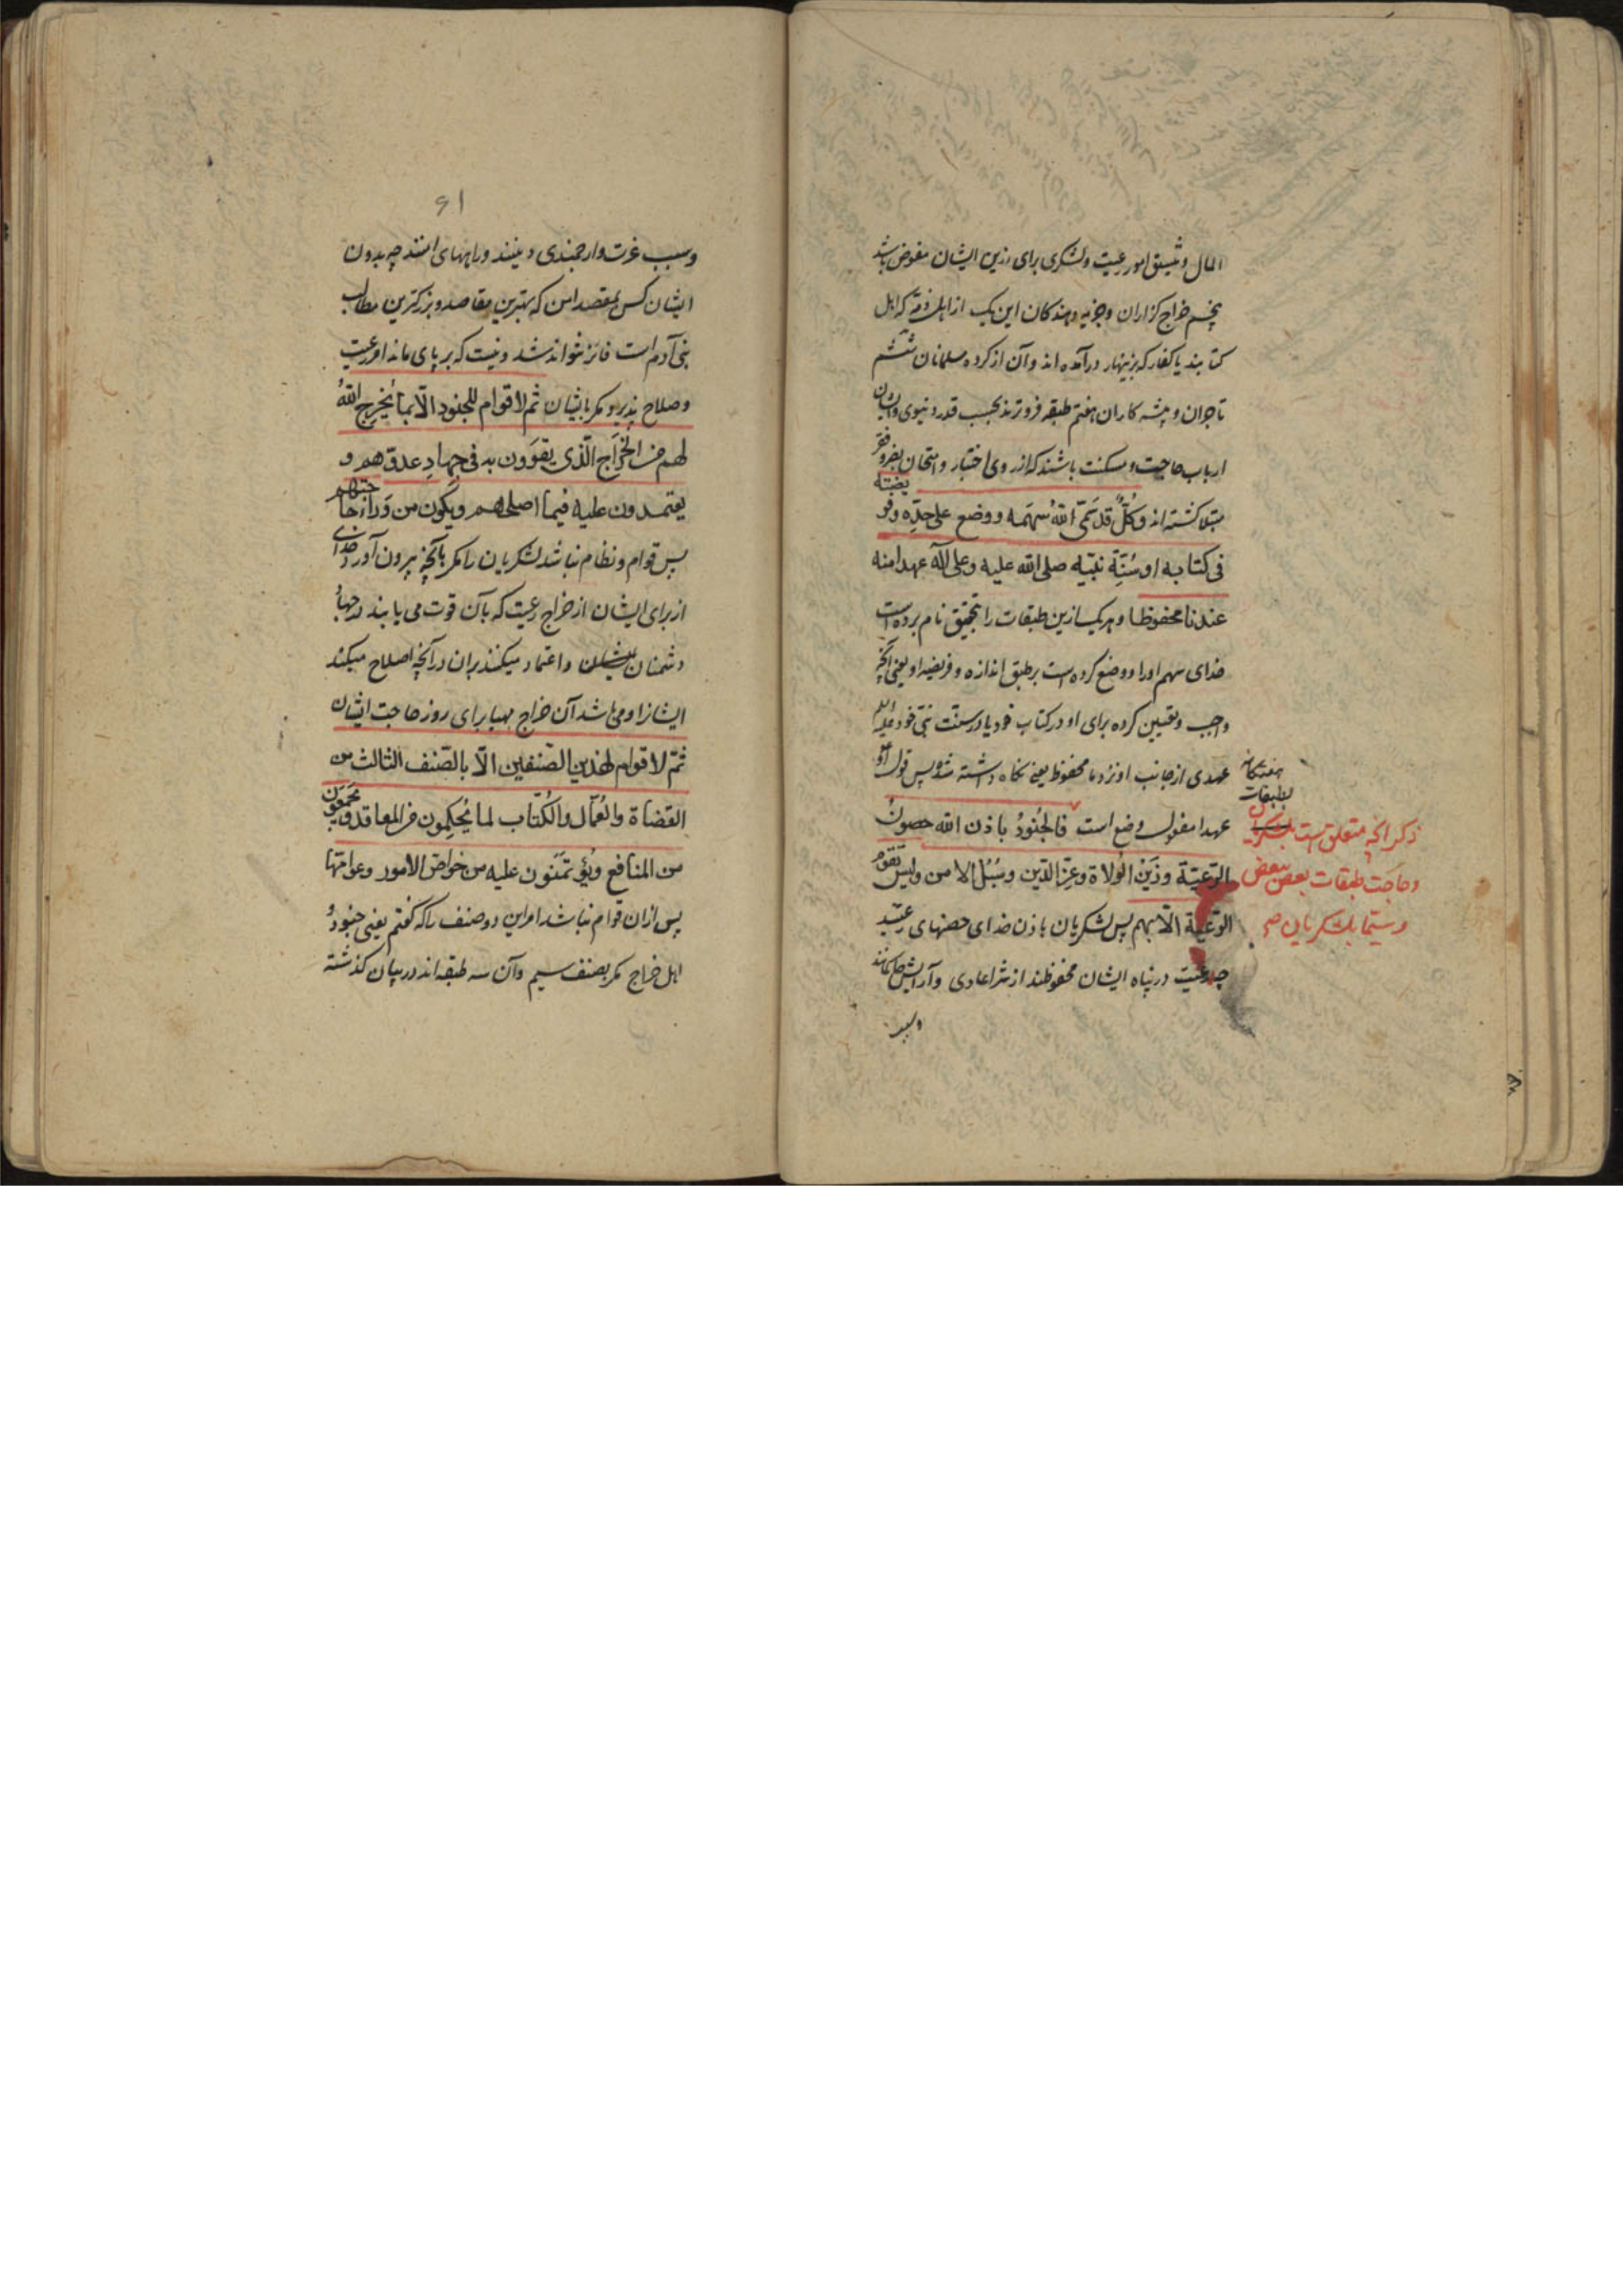 المال و تنسیق امور رعیت و لشکری برای رزین ایشان مفوض باشد
پنجم خراج گزاران و جزیه دهندگان این یک از اهل ذمه که اهل
کتابند یا کفار که بزینهار درآمده اند و آن از کرده مسلمانان ششم
تاجران و پیشه کاران هفتم طبقه فروترند بحسب قدر دنیوی و ایشان
ارباب حاجت و مسکنت باشند که از روی اختبار و امتحان بفقر و
مبتلا گشته اند و كُلٌّ قد سَمّى اللهُ سهمَه و وضع على حدّه و فريضته
فى كتابه او سُنّة نبيّه صلى الله عليه وعلى اله عهدا منه
عندنا محفوظا و هر یک ازین طبقات را بتحقیق نام برده است
خدای سهم او را و وضع کرده است بر طبق اندازه و فریضه او یعنی آنچه
واجب و تعیین کرده برای او در کتاب خود یا در سنت نبی خود علیه السلام
عهدی از جانب او نزد ما محفوظ یعنی نگاه داشته شده پس قول او
عهدا مفعول وضع است فالجُنودُ باذن الله حصونُ
الرّعيّة وزَيْن الوُلاة وعِزّ الدّين وسُبُل الامن وليس تقوم
الرّعيّة الّا بهم پس لشکریان باذن خدای حصنهای رعیتند
چه رعیت در پناه ایشان محفوظند از شر اعادی و آرایش حاکمانند
وسبب
هفتکانه
طبقات
ذکر آنچه متعلق است بلشکریان
و حاجت طبقات بعضی ببعض
و سیما بلشکریان صح
۶۱
و سبب عزت و ارجمندی دینند و راههای امنند چه بدون
ایشان کس بمقصد امن که بهترین مقاصد و بزرگترین مطالب
بنی آدم است فائز نتواند شد و نیست که بر پای ماند امور رعیت
و صلاح پذیرد مگر بایشان ثم لا قوام للجنود الّا بما يُخرِج اللهُ
لهم من الخَراج الّذى يقوَون به فى جهادِ عدوّهم و
يعتمدون عليه فيما اصلحهم ويكون من وَراء حاجتهم
پس قوام و نظام نباشد لشکریان را مگر بآنچه بیرون آورد خدای
از برای ایشان از خراج رعیت که بآن قوت می یابند در جهاد
دشمنان ایشان و اعتماد میکنند بران در آنچه اصلاح میکند
ایشانرا و می باشد آن خراج مهیا برای روز حاجت ایشان
ثمّ لا قوام لهذين الصّنفين الّا بالصّنف الثالث من
القضاة والعُمّال والكُتّاب لما يُحكِمون من المعاقد ويجمعون
من المنافع ويُؤتمَنون عليه من خواصّ الامور وعوامّها
پس ازان قوام نباشد مراین دو صنف را که گفتم یعنی جنود و
اهل خراج مگر بصنف سیم و آن سه طبقه اند در بیان گذشته